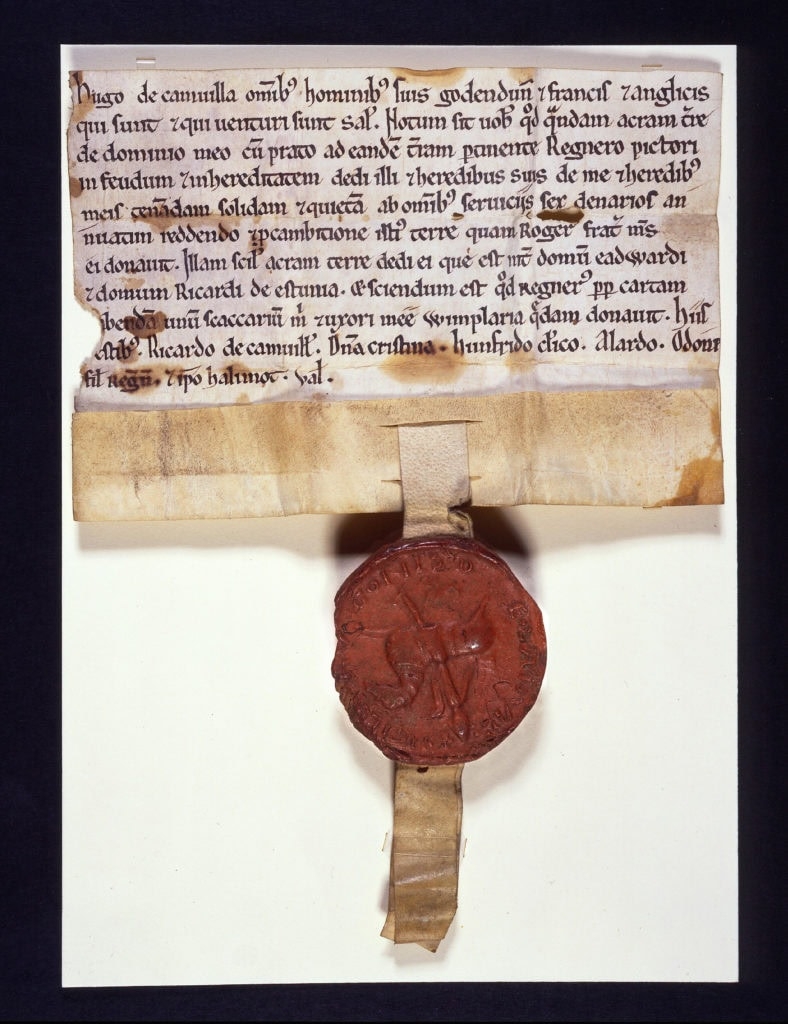 hugo de camuilla om̅ib⁹ hominib⁹ suis godendun̅ ⁊ francis ⁊ anglicis
qui sunt ⁊ qui uenturi sunt sal̕. Notum sit uob̕ qd̕ q̅ndam acram t̅re
de dominio meo cu̅ prato ad eande̅ t̅ram ꝑtinente Regnero pictori
in feudum ⁊ in hereditatem dedi illi ⁊ heredibus suis de me ⁊ heredib⁹
meis tene̅dam solidam ⁊ quieta̅ ab om̅ib⁹ seruiciis sex denarios an
nuatim reddendo ⁊ ꝑ cambitione illi⁹ terre quam Roger⁹ frat̕ m̅s
ei donauit. Illam scil̕ acram terre dedi ei que est int̕ domu̅ eadwardi
⁊ domum Ricardi de estunia. & sciendum est qd̕ regner⁹ ꝓp̅ cartam
habenda̅ unu̅ scaccariu̅ m̕ ⁊ uxori mee wimplaria q̅dam donauit. Hiis
testib⁹. Ricardo de camuill̕. Dn̅a cristina. hunfrido cl̕ico. Alardo. Odone
fil̕ regn̅. ⁊ ip̅o halimot. val̕.